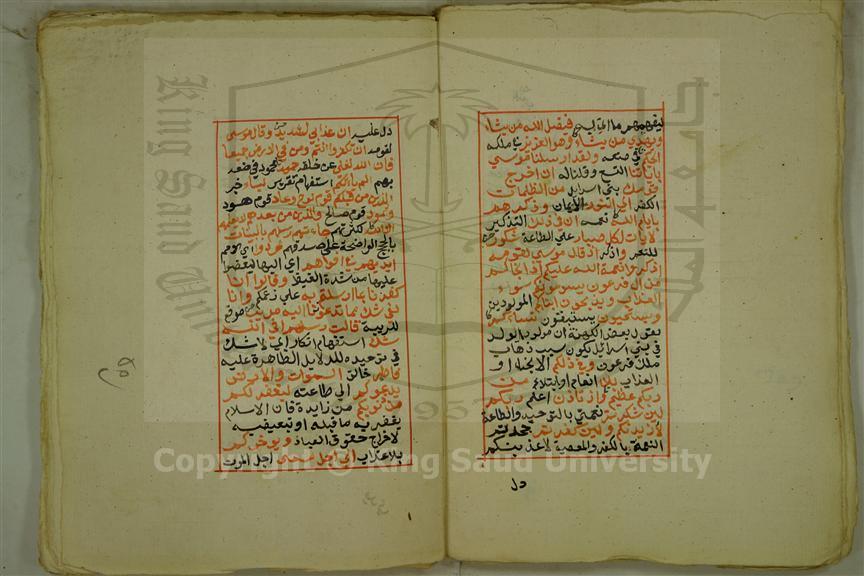 ليفهمهم ما اتى به فيضل الله من يشاء
ويهدي من يشاء وهو العزيز في ملكه
الحكيم في صنعه ولقد ارسلنا موسى
باياتنا التسع وقلنا له ان اخرج
قومك بني اسرايل من الظلمات
الكفر الى النور الايمان وذكرهم
بايام الله نعمه ان في ذلك التذكير
لايات لكل صبار على الطاعة شكور
للنعم و اذكر اذ قال موسى لقومه
اذكروا نعمة الله عليكم اذ انجاكم
من ال فرعون يسومونكم سوء
العذاب ويذبحون ابناءكم المولودين
ويستحيون يستبقون نساءكم
لقول بعض الكهنة ان مولودا يولد
في بني اسرائيل يكون سبب ذهاب
ملك فرعون وفي ذلكم الانجاء او
العذاب بلاء انعام او ابتلاء من
ربكم عظيم واذ تاذن اعلم ربكم
لين شكرتم نعمتي بالتوحيد والطاعة
لازيدنكم ولين كفرتم جحدتم
النعمة بالكفر والمعصية لاعذبنكم
دل
دل عليه ان عذابي لشديد وقال موسى
لقومه ان تكفروا انتم ومن في الارض جميعا
فان الله لغني عن خلقه حميد محمود في صنعه
بهم الم ياتكم استفهام تقرير نباء خبر
الذين من قبلكم قوم نوح وعاد قوم هود
وثمود قوم صالح والذين من بعدهم لا يعلمهم
الا الله لكثرتهم جاءتهم رسلهم بالبينات
بالحجج الواضحة على صدقهم فردوا اي هم
ايديهم في افواههم اي اليها ليعضوا
عليها من شدة الغيظ وقالوا انا
كفرنا بما ارسلتم به على زعمكم وانا
لفي شك مما تدعوننا اليه مريب موقع
للريبة قالت رسلهم افي الله
شك استفهام انكار اي لا شك
في توحيده للدلايل الظاهرة عليه
فاطر خالق السموات والارض
يدعوكم الى طاعته ليغفر لكم
من ذنوبكم من زايدة فان الاسلام
يغفر به ما قبله او تبعيضية
لاخراج حقوق العباد ويوخركم
بلا عذاب الى اجل مسمى اجل الموت
King Saud University
جامعة الملك سعود
1957
Copyright © King Saud University